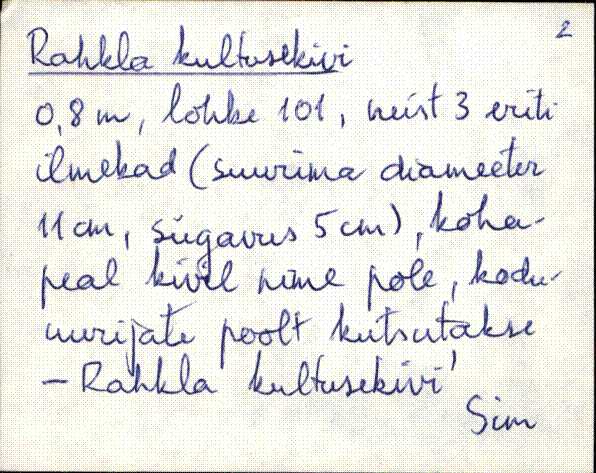 2
Rahkla kultusekivi
0,8 m, lohke 101, neist 3 eriti
ilmekad (suurima diameeter
11 cm, sügavus 5 cm), koha-
peal kivil nime pole, kodu-
uurijate poolt kutsutakse
– Rahkla kultusekivi'
Sim